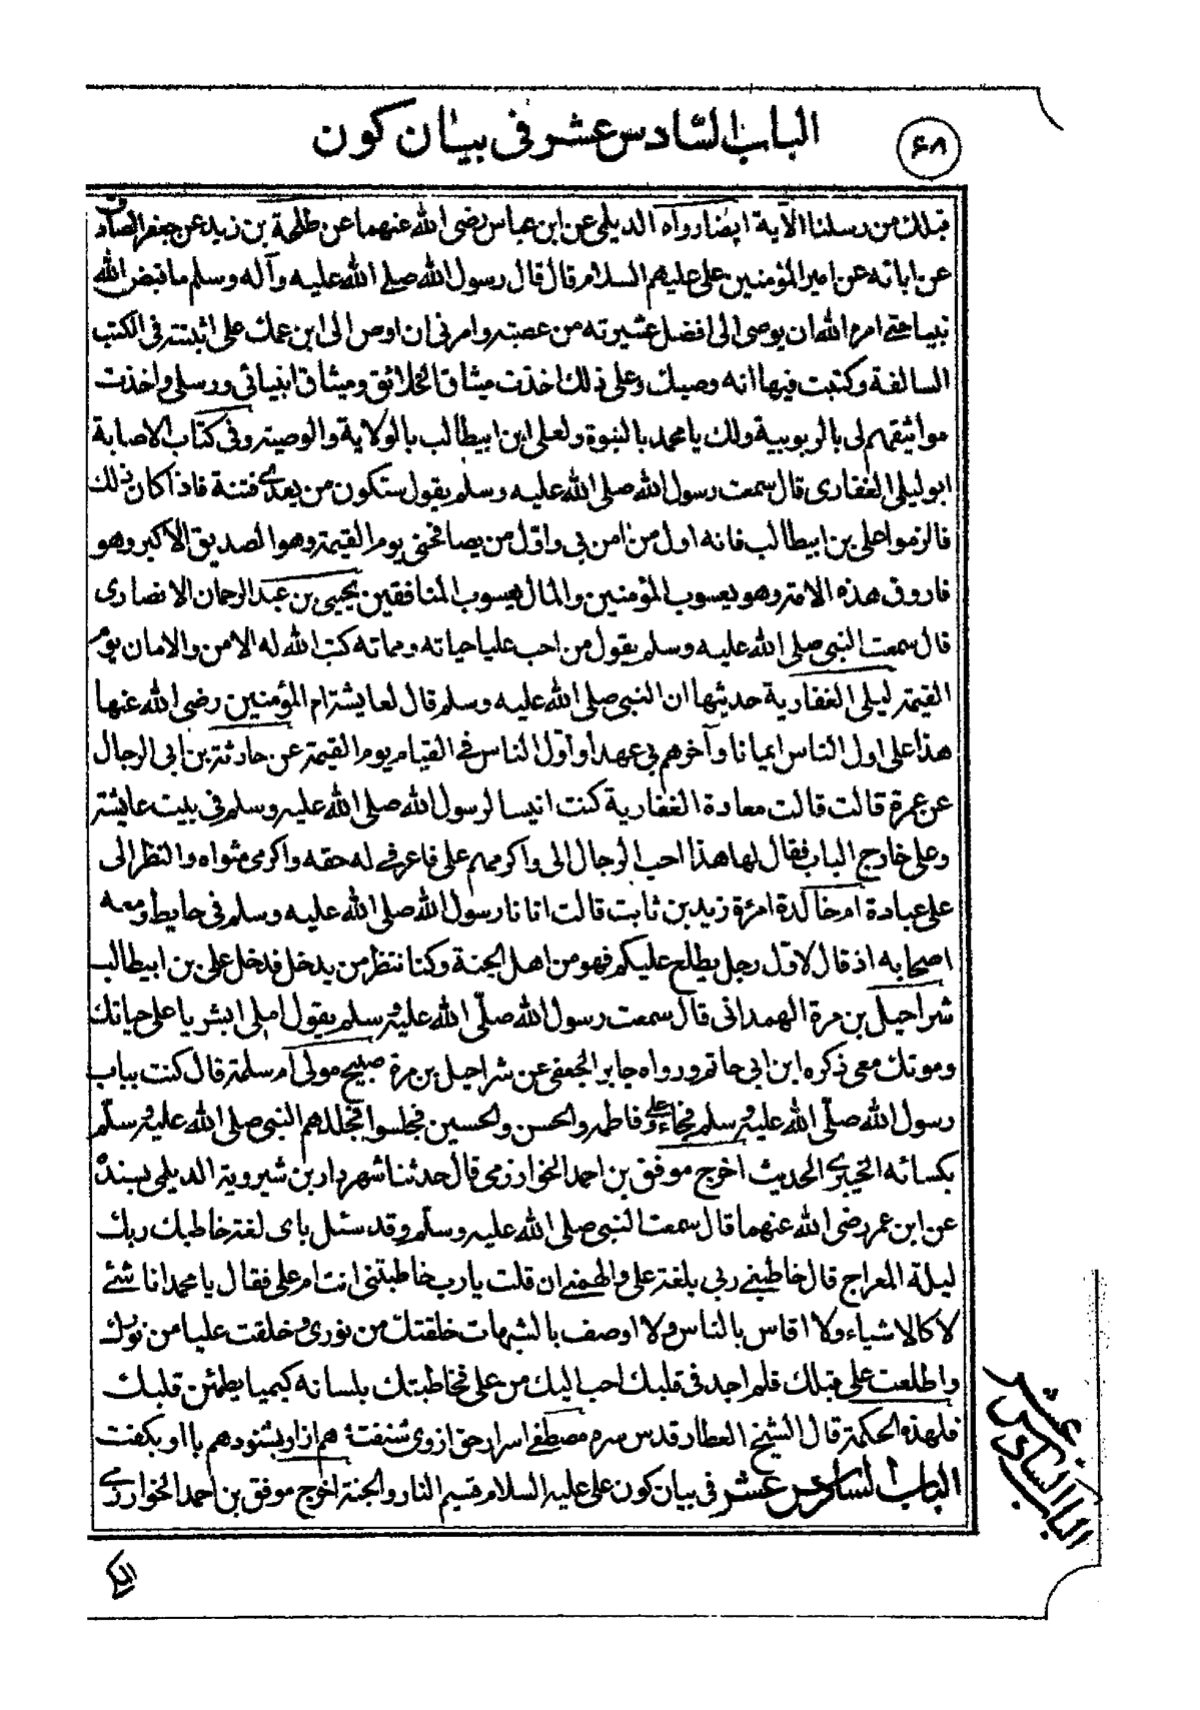 الباب السادس عشر في بيان كون
۶۸
قبلك من رسلنا الآية ايضا رواه الديلمي عن ابن عباس رضى الله عنهما عن طلحة بن زيد عن جعفر الصادق
عن ابائه عن امير المؤمنين على عليهم السلام قال قال رسول الله صلى الله عليه وآله وسلم ما قبض الله
نبيا حتى امره الله ان يوصى الى افضل عشيرته من عصبته وامرنى ان اوص الى ابن عمك على اثبته في الكتب
السالفة وكتبت فيها انه وصيك وعلى ذلك اخذت ميثاق الخلائق وميثاق انبيائى ورسلى واخذت
مواثيقهم لى بالربوبية ولك يا محمد بالنبوة ولعلى ابن ابيطالب بالولاية والوصية وفى كتاب الاصابة
ابو ليلى الغفارى قال سمعت رسول الله صلى الله عليه وسلم يقول ستكون من بعدى فتنة فاذا كان ذلك
فالزموا على بن ابيطالب فانه اول من امن بى واول من يصافحنى يوم القيمة وهو الصديق الاكبر وهو
فاروق هذه الامة وهو يعسوب المؤمنين والمال يعسوب المنافقين يحيى بن عبد الرحمان الانصارى
قال سمعت النبى صلى الله عليه وسلم يقول من احب عليا حياته ومماته كتب الله له الامن والامان يوم
القيمة ليلى الغفارية حديثها ان النبى صلى الله عليه وسلم قال لعايشة ام المؤمنين رضى الله عنها
هذا على اول الناس ايمانا وآخرهم بى عهدا واول الناس فى القيام يوم القيمة عن حادثة بن ابى الرجال
عن عمرة قالت قالت معادة الغفارية كنت انيسا لرسول الله صلى الله عليه وسلم فى بيت عايشة
وعلى خارج الباب فقال لها هذا احب الرجال الى واكرمهم على فاعرفى له حقه واكرمى مثواه والنظر الى
على عبادة ام خالدة امرءة زيد بن ثابت قالت اتانا رسول الله صلى الله عليه وسلم فى حايط ومعه
اصحابه اذ قال لاول رجل يطلع عليكم فهو من اهل الجنة وكنا ننتظر من يدخل فدخل على بن ابيطالب
شراحيل بن مرة الهمدانى قال سمعت رسول الله صلى الله عليه وسلم يقول لعلى ابشر يا على حياتك
وموتك معى ذكره ابن ابى حاتم ورواه جابر الجعفى عن شراحيل بن مرة صبيح مولى ام سلمة قال كنت بباب
رسول الله صلى الله عليه وسلم فجاء على وفاطمة والحسن والحسين فجلسوا فجللهم النبى صلى الله عليه وسلم
بكسائه الخيبرى الحديث اخرج موفق بن احمد الخوارزمى قال حدثنا شهردار بن شيروية الديلمى بسنده
عن ابن عمر رضى الله عنهما قال سمعت النبى صلى الله عليه وسلم وقد سئل باى لغة خاطبك ربك
ليلة المعراج قال خاطبنى ربى بلغة على والهمنى ان قلت يا رب خاطبتنى انت ام على فقال يا محمد انا شئ
لا كالاشياء ولا اقاس بالناس ولا اوصف بالشبهات خلقتك من نورى وخلقت عليا من نورك
واطلعت على قبلك فلم اجد فى قلبك احب اليك من على فخاطبتك بلسانه كيما يطمئن قلبك
فلهذه الحكمة قال الشيخ العطار قدس سره مصطفى اسرار حق ازوى شنفت هم ازاو بشنود هم بااو بكفت
الباب السادس عشر فى بيان كون على عليه السلام قسيم النار والجنة اخرج موفق بن احمد الخوارزمى
الباب السادس عشر